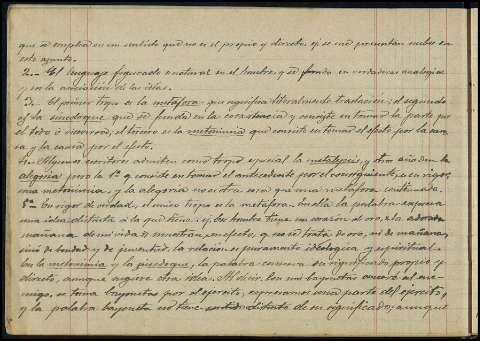 que se emplea en un sentido que no es el propio y directo; ej: se me presentan nubes en
este asunto.
2.- El lenguaje figurado es natural en el hombre, y se funda en verdaderas analogías
y en la asociación de las ideas.
3.- El primer tropo es la metáfora que significa literalmente traslación; el segundo
es la sinécdoque que se funda en la coexistencia y consiste en tomar la parte por
el todo o viceversa; el tercero es la metonimia que consiste en tomar el efecto por la cau-
sa y la causa por el efecto.
4.- Algunos escritores admiten como tropo especial la metalepsis, y otros añaden la
alegoría pero la 1ª que consiste en tomar el antecedente por el consiguiente, es en rigor
una metonimia, y la alegoría no es otra cosa que una metáfora continuada.
5ª- En rigor de verdad, el único tropo es la metáfora. En ella la palabra expresa
una idea distinta a la que tiene; ej: tu hombre tiene un corazón de oro, o la adorada
mañana de mi vida: es muestran, en efecto, q. no se trata de oro, ni de mañana,
sino de bondad y de juventud, la relación es puramente ideológica y espiritual.
En la metonimia y la sinécdoque, la palabra conserva su significado propio y
directo, aunque sugiere otra idea. Al decir, las mil bayonetas al ene-
migo, se toma bayonetas por el ejército, expresamos una parte del ejército,
y la palabra bayoneta no tiene sentido distinto de su significado; aunque